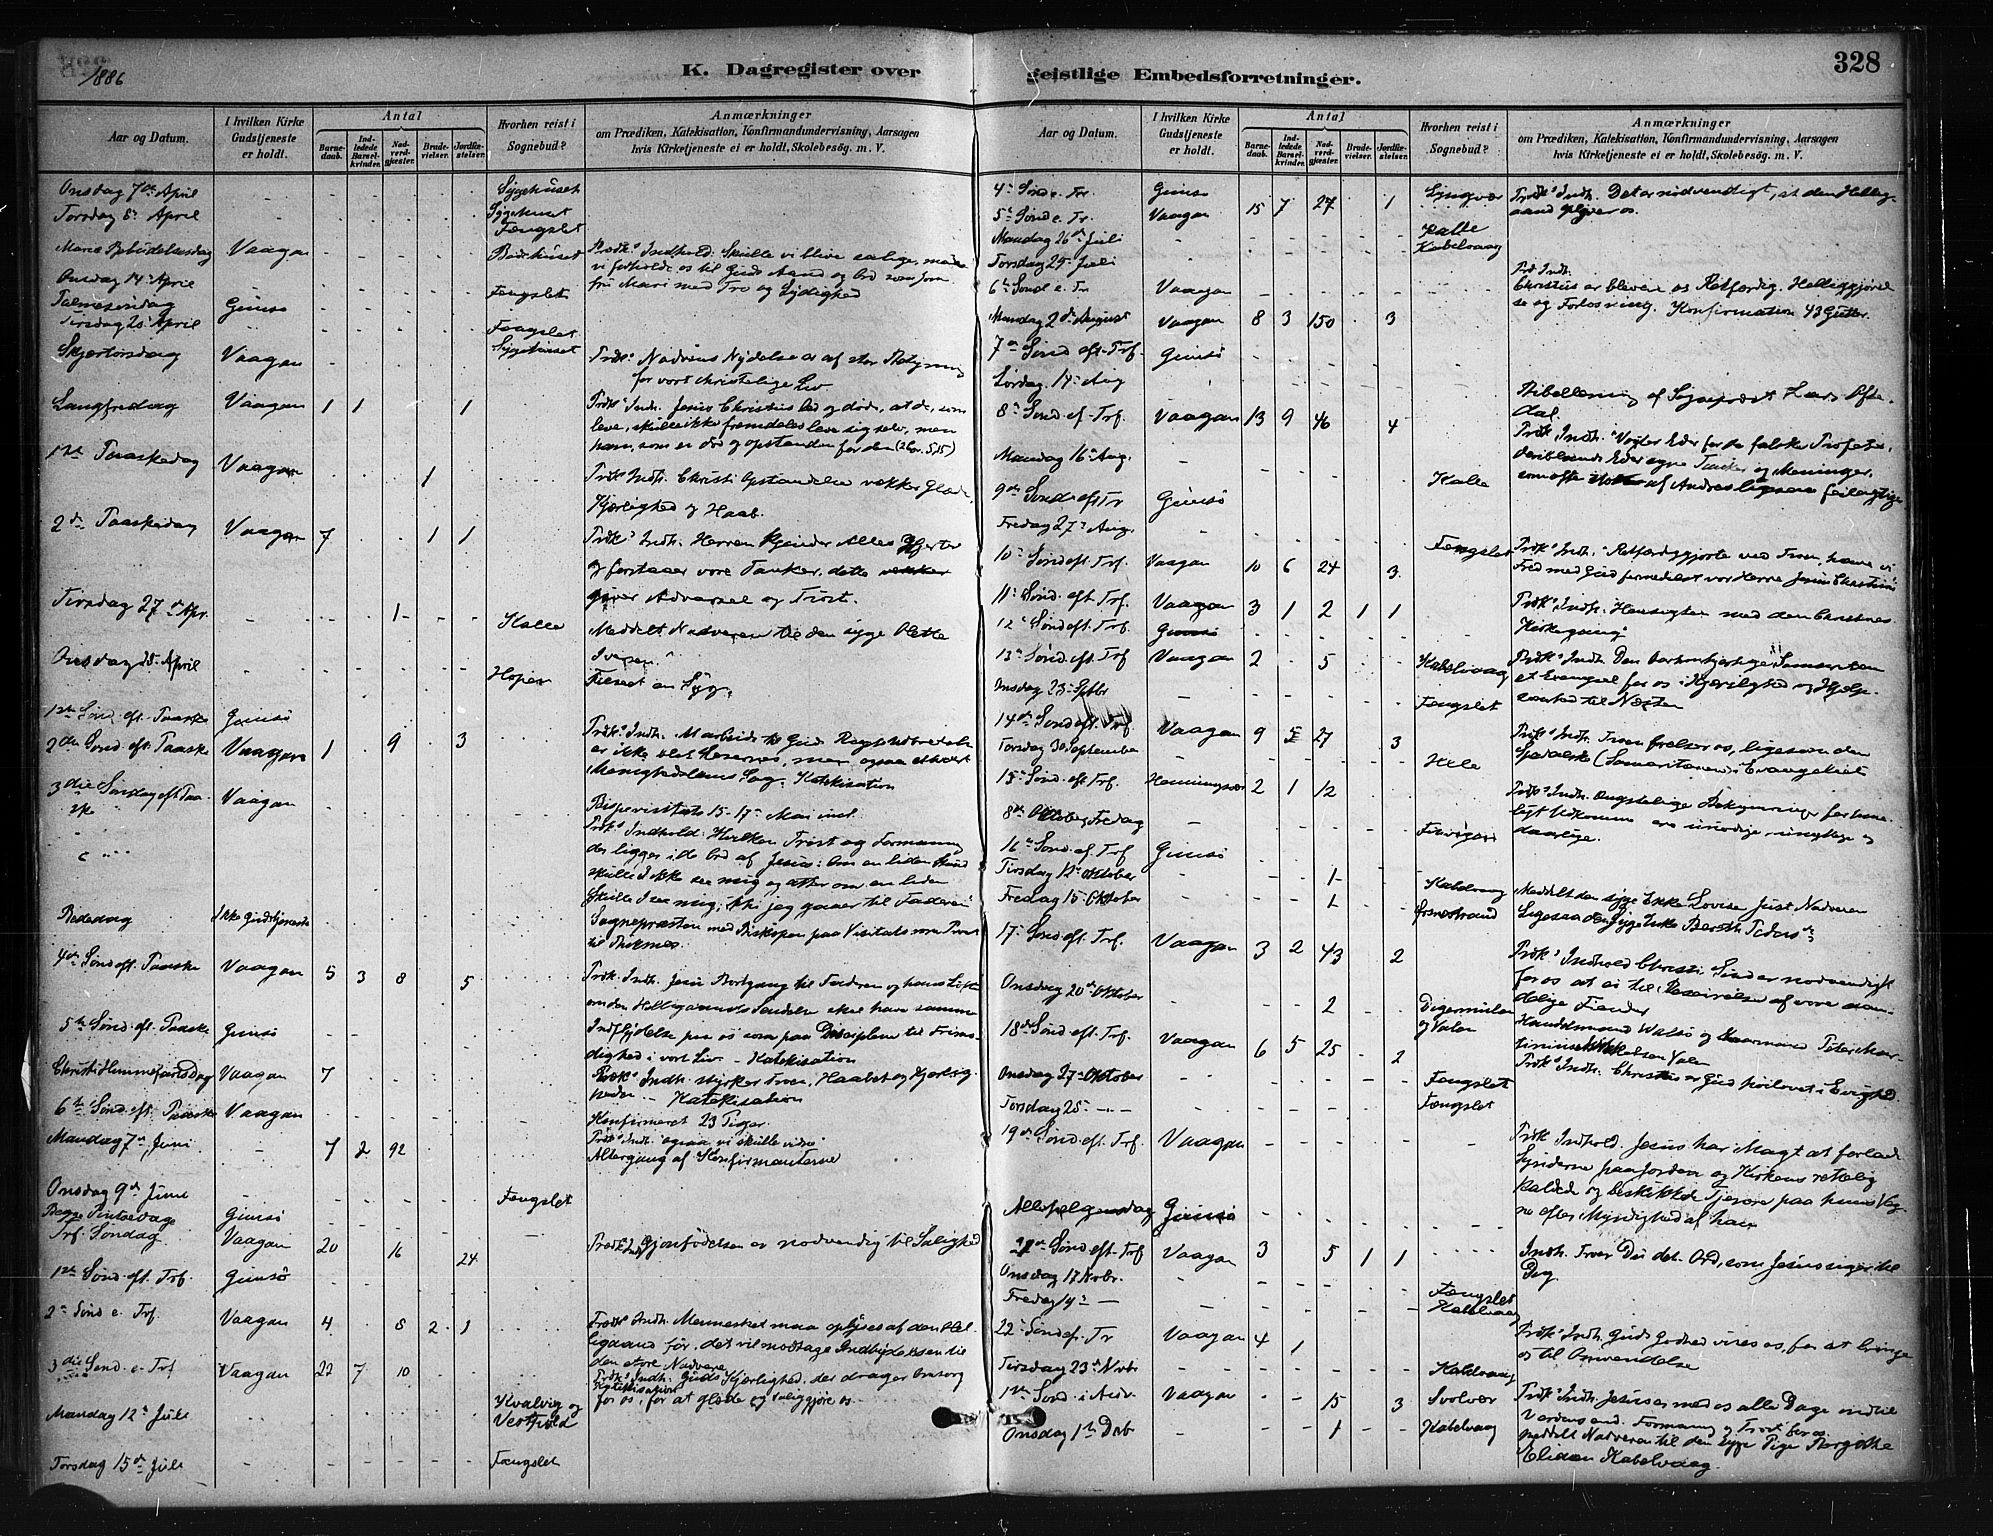 1886
K. Dagregister over geistlige Embedsforretninger.
328
Aar og Datum.
I hvilken Kirke Gudstjeneste er holdt.
Antal
Barnedaab.
Indledede Barselkvinder.
Nadverdgjester.
Brudevielser.
Jordfæstelser.
Hvorhen reist i Sognebud?
Anmærkninger
om Prædiken, Katekisation, Konfirmandundervisning, Aarsagen
hvis Kirketjeneste ei er holdt, Skolebesög. m. V.
Onsdag 7de April - Sygehuset
Torsdag 8de April - Sygehuset
Fængslet
Mariæ Bebudelsesdag Vaagan - Bedehuset Præk. Indhold. Skulle vi blive salige, maa
vi forholde os til Guds Aand og Ord som Jom
fru Mari med Tro og Lydighed
Onsdag 14de April - Fængslet
Palmesøndag Gimsø
Tirsdag 20de April - Fængslet
Sygehuset
Skjærtorsdag Vaagan Præk. Nadverens Nydelse er af stor Betydning
for vort christelige Liv
Langfredag Vaagan 1 1 1 Præk. Indh. Jesus Christus led og døde, at de, som
leve, skulle ikke fremdeles leve sig selv, men
ham, som er død og opstanden for dem (2 Cor. 5,15)
1ste Paaskedag Vaagan 1 Præk. Indh. Christi Opstandelse vækker Glæde,
Kjærlighed og Haab.
2den Paaskedag Vaagan 7 1 1 Præk. Indh. Herren kjender Alles Hjerter
og forstaaer vore Tanker, dette
giver Advarsel og Trøst.
Tirsdag 27de Apr. - 1 Kalle Meddelt Nadveren til den syge
Iversen.
Onsdag 28. April Hopen en Syg.
1ste Sønd. eft. Paaske Gimsø
2den Sønd. eft. Paaske Vaagan 1 9 3 Præk. Indh. At arbeide til Guds Rigs Udbredelse
er ikke blot Lærernes, men ogsaa ethvert
Menighedslems Sag. Katekisation
3die Søndag eft. Paaske Vaagan Bispevisitats 15-17de Mai incl.
Præk. Indhold: Hvilken Trøst og Formaning
der ligger i de Ord af Jesus: Om en liden Stund
skulle I ikke see mig og atter om en liden
skulle I see mig, thi jeg gaaer til Faderen
Bededag Ikke Gudstjeneste Sognepræsten med Biskopen paa Visitats som Provst
til
4de Sønd. eft. Paaske Vaagan 5 3 8 5 Præk. Indh. Jesu Bortgang til Faderen og hans Løfte
om den Helligaands Sendelse skal have samme
Indflydelse paa os som paa Disciplene til
dighed i vort Liv - Katekisation
5te Sønd. eft. Paaske Gimsø
Christi Himmelfartsdag Vaagan 7 Præk. Indh. styrker Troen, Haabet og Kjærlig
heden - Katekisation
6te Sønd. eft. Paaske Vaagan Konfirmeret 23 Piger.
Præk. Indh. ogsaa vi skulle vidne
Mandag 7de Juni - 7 2 92 Altergang af Konfirmanterne
Onsdag 9de Juni - Fængslet
Begge Pintsedage Gimsø
Trf. Søndag Vaagan 20 16 24 Præk. Indh. Gjenfødelsen er nødvendig til Salighed
1ste Sønd. eft. Trf. Gimsø
2den Sønd e. Trf. Vaagan 4 8 2 1 Præk. Indh. Mennesket maa oplyses af den Hel
ligaand før, det vil modtage Indbydelsen til
den store Nadvere
3die Sønd. e. Trf Vaagan 22 7 10 Præk. Indh. Guds Kjærlighed, der drager Omsorg
Katekisation
for os, for at glæde og saliggjøre os.
Mandag 12te Juli Kvalvig og
Vestfold
Torsdag 15de Juli - Fængslet
Aar og Datum.
I hvilken Kirke Gudstjeneste er holdt.
Antal
Barnedaab.
Indledede Barselkvinder.
Nadverdgjester.
Brudevielser.
Jordfæstelser.
Hvorhen reist i Sognebud?
Anmærkninger
om Prædiken, Katekisation, Konfirmandundervisning, Aarsagen
hvis Kirketjeneste ei er holdt, Skolebesög. m. V.
4de Sønd e. Tr Gimsø Lyngvær Præk. Indh. Det er nødvendigt, at den Hellig
aand oplyser os.
5te Sønd e. Tr. Vaagan 15 7 27 1
Mandag 26de Juli - Kalle
Torsdag 29de Juli - Kabelvaag
6te Sønd e. Tr Vaagan Præ. Indh.
Christus er bleven os Retfærdig, Helliggjørel
se og Forløsning. Konfirmation 43 Gutter.
Mandag 2de August Vaagan 8 3 150 3
7de Sønd eft. Trf. Gimsø
Lørdag 14de Aug
8de Sønd. ef. Trf. Vaagan 13 9 46 4 af Sogneprest Lars Ofte
dal.
Præk. Indh. Vogter Eder for de falske Profeter,
deriblandt Eders egne Tanker og Meninger,
som ofte af Andres ligesaa feilagtige
Mandag 16de Aug. - Kalle
9de Sønd. eft Tr Gimsø
Fredag 27de Aug. - Fængslet
10de Sønd eft. Trf. Vaagan 10 6 24 3 Præk. Indh. Retfærdiggjorte ved Troen, have vi
Fred med Gud formedelst vor Herre Jesum Christum
11te Sønd. eft Trf. Vaagan 3 1 2 1 1 Præk. Indh. Hensigten med den Christnes
Kirkegang
12te Sønd eft. Trf. Gimsø
13de Sønd. eft. Trf Vaagan 2 5 Kabelvaag Præk. Indh. Den barmhjertige Samaritan
et Exempel for os i Kjærlighed og Hjælp
somhed til Næsten
Onsdag 23de Sptbr - Fængslet
14de Sønd eft. Trf. Vaagan 9 5 27 3 Præk. Indh. Troen frelser os, ligesom den
Spedalske (Samaritanen) i Evangeliet
Torsdag 30 September - Helle
15de Sønd. eft Trf. Henningsvær 2 1 12 Præk. Indh. Ængstelige Bekymringer for time
ligt Udkomme ere unødige, unyttige og
daarlige.
8de Oktober Fredag -
16de Sønd. ef. Trf Gimsø
Tirsdag 12te Oktober - 1 Kabelvaag Meddelt den syge Enke Lovise Just Nadveren
Fredag 15de Oktober - 1 Ørsnesstrand Ligesaa den syge Enke Pedersdr
17de Sønd eft. Trf. Vaagan 3 2 43 2 Præk. Indhold Christi Sind er nødvendigt
for os at ei til Beseirelse af vore aan
delige Fiender
Onsdag 20de Oktober 2 Digermulen
og Valen Handelsmand og Gaarmand Peter Mar
tinius Mikkelsen Valen
18de Sønd eft. Trf. Vaagan 6 5 25 2 Præk. Indh. Christus er Gud høilovet i Evighed
Onsdag 27de Oktober - Fængslet
Torsdag 28 - - Fængslet
19de Sønd eft. Trf. Vaagan Præk. Indhold. Jesus har Magt at forlade
Synderne paa Jorden og Kirkens rettelig
kaldede og beskikkede Tjenere paa hans Veg
ne efter Myndighed af ham
Allehelgensdag Gimsø
21de Sønd eft. Trf Vaagan 3 5 1 1 Indh. Troer Du det Ord, som Jesus siger til
Dig.
Onsdag 17 Novbr. - Fængslet
Fredag 19de - - Kabelvaag
22de Sønd ef. Tr Vaagan 4 1 Præk. Indh. Guds Godhed vises os, for at bringe
os til Omvendelse
Tirsdag 23de Novbr - Kabelvaag
1ste Sønd. i Adv. Vaagan 15 3 Svolvær Præk. Indh. Jesus er med os alle Dage indtil
Verdens end. Formaning og Trøst for os
Onsdag 1ste Decb - 1 Kabelvaag Meddelt Nadveren til den syge Pige Bergithe
Kabelvaag.